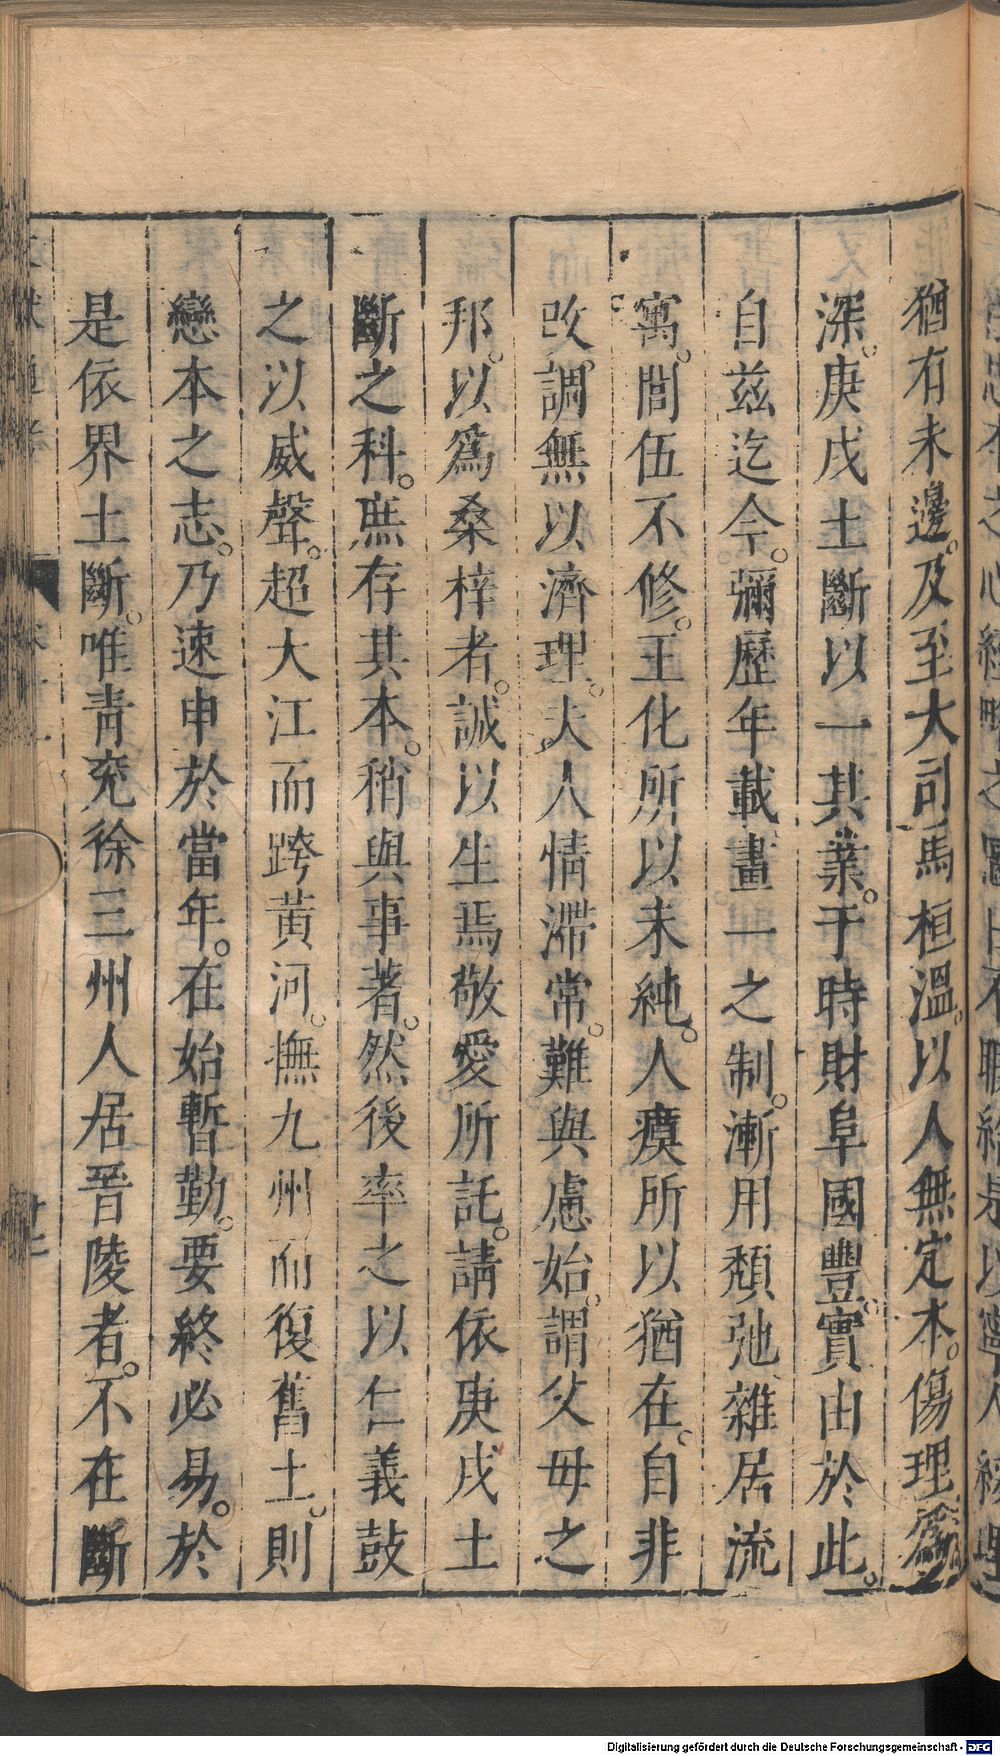 猶有未邊。及至大司馬桓溫。以人無定本。傷理爲
深。庚戌土斷以一其業。于時財阜國豐。實由於此。
自茲迄今。彌歷年載畫一之制。漸用頹弛雜居流
寓。閭伍不修。王化所以未純。人瘼所以猶在。自非
改調無以濟理。夫人情滯常。難與慮始。謂父母之
邦。以爲桑梓者。誠以生焉敬愛所託。請依庚戌土
斷之科。庶存其本。稍與事著。然後率之以仁義鼓
之以威聲。超大江而跨黃河。撫九州而復舊土。則
戀本之志。乃速申於當年。在始暫勤。要終必易。於
是依界土斷。唯青兗徐三州人居晉陵者。不在斷
Digitalisierung gefördert durch die Deutsche Forschungsgemeinschaft - DFG